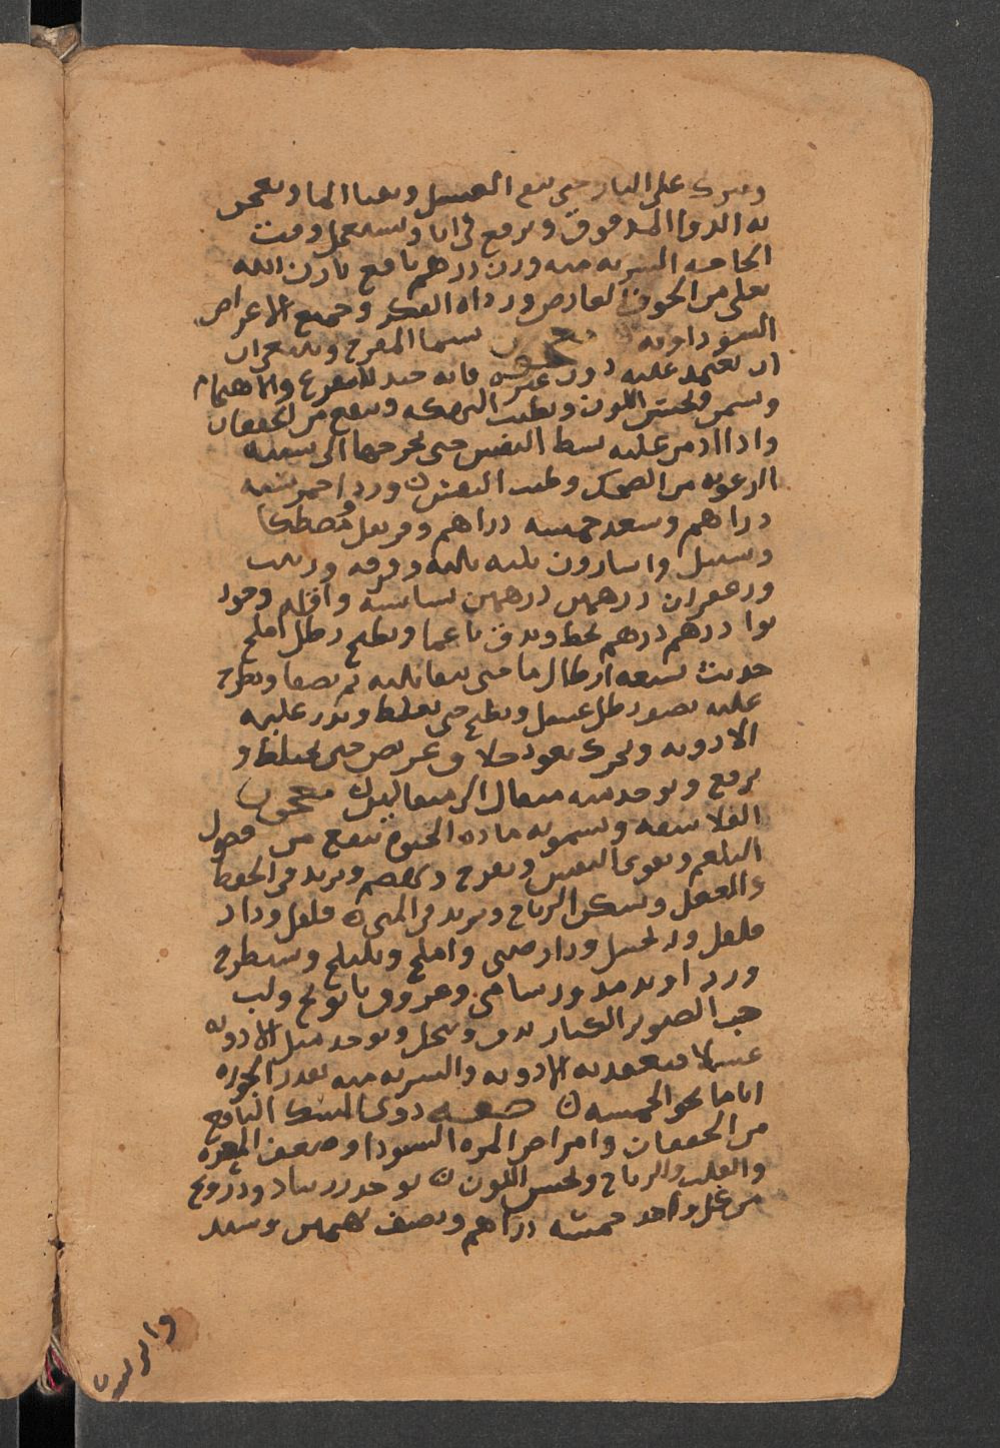 ويترك على النار حتى يبقى العسل ويفنا الما ويعجن
به الدوا المدقوق ويرفع في انا ويستعمل وقت
الحاجه الشربه منه وزن درهم نافع باذن الله
تعلى من الخوف العارض ورداه الفكر وجميع الاعراض
السوداويه معجون يسما المفرح
ان يعتمد عليه دون غيره فانه جيد للمفرع والاهتمام
ويسمن ويحسن اللون ويطيب النكهه وينفع من الخفقان
واذا ادمن عليه بسط النفس حتى يخرجها الى
من الضحك وطيب النفس ورد احمر سته
دراهم وسعد خمسه دراهم وقرنفل مصطكا
وسنبل واسارون ثلثه ثلثه وقرفه وزرنب
وزعفران درهمين درهمين بسباسه وقاقله وجوز
بوا درهم درهم يخلط ويدق ناعما ويطبخ رطل املج
حديث بتسعه ارطال ما حتى يبقا ثلثه ثم يصفا ويطرح
عليه نصف رطل عسل ويطبخ حتى يغلظ ويذر عليه
الادويه ويحرك بعود خلاف عريض حتى يختلط و
يرفع ويوخذ منه مثقال الى مثقالين معجون
الفلاسفه ويسمونه ماده الحيوة ينفع من فضول
البلغم ويقوى النفس ويفرح ويهضم ويزيد في الحفظ
والعقل ويسكن الرياح ويزيد في المنى فلفل ودار
فلفل وزنجبيل ودارصينى واملج وبليلج وشيطرج
وزراوند مدور وعروق بابونج ولب
حب الصنوبر الكبار يدق وينخل ويوخذ مثل الادويه
عسلا فيعقد به الادويه والشربه منه بقدر الجوزه
اياما نحو الخمسه صفه دوى المسك النافع
من الخفقان وامراض المره السودا وضعف المعده
والقلب والرياح ويحسن اللون يوخذ زرنباد ودرونج
من كل واحد خمسه دراهم ونصف بهمن وسنبل